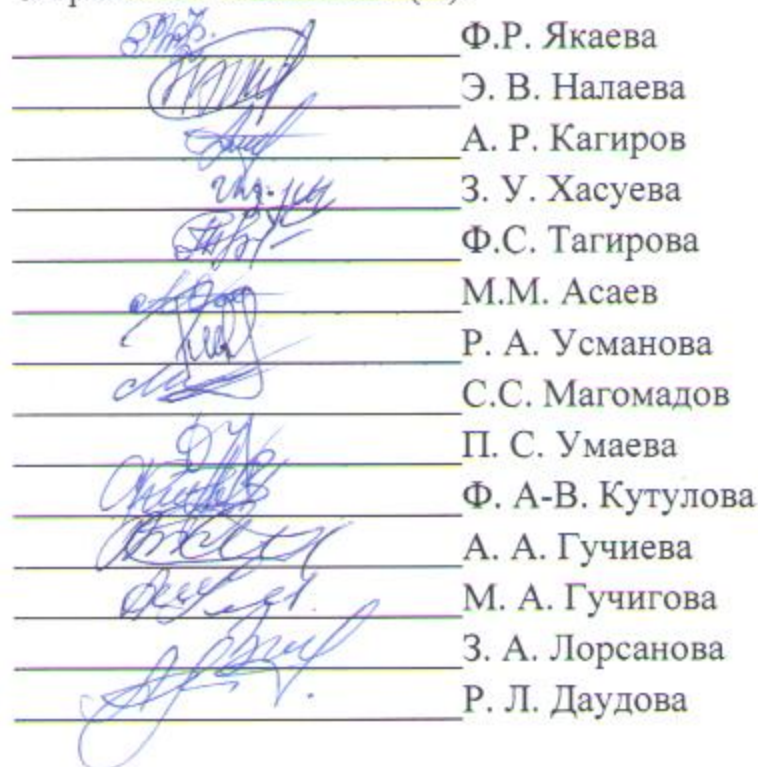 Ф.Р. Якаева
Э. В. Налаева
А. Р. Кагиров
З. У. Хасуева
Ф.С. Тагирова
М.М. Асаев
Р. А. Усманова
С.С. Магомадов
П. С. Умаева
Ф. А-В. Кутулова
А. А. Гучиева
М. А. Гучигова
З. А. Лорсанова
Р. Л. Даудова